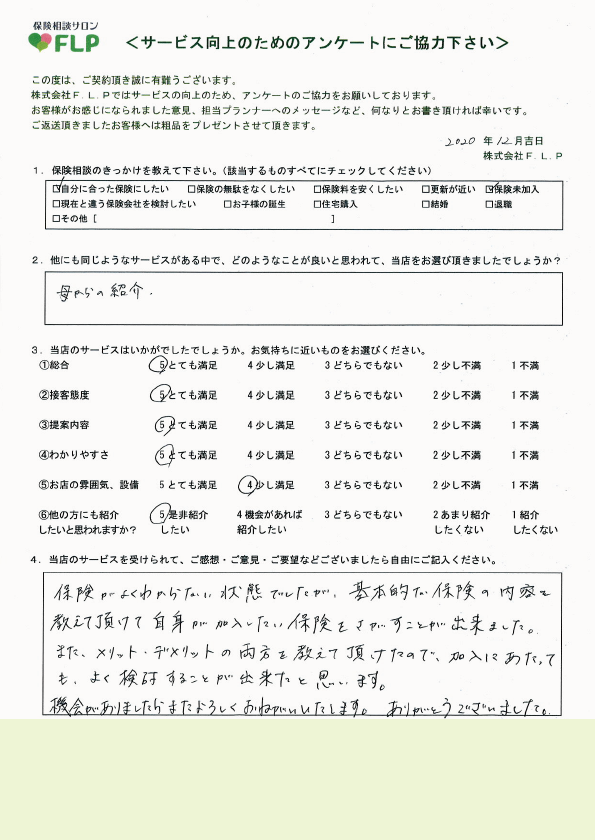 保険相談サロン
FLP
＜サービス向上のためのアンケートにご協力下さい＞
この度は、ご契約頂き誠に有難うございます。
株式会社Ｆ．Ｌ．Ｐではサービスの向上のため、アンケートのご協力をお願いしております。
お客様がお感じになられました意見、担当プランナーへのメッセージなど、何なりとお書き頂ければ幸いです。
ご返送頂きましたお客様へは粗品をプレゼントさせて頂きます。
2020 年 12 月吉日
株式会社Ｆ．Ｌ．Ｐ
１．保険相談のきっかけを教えて下さい。（該当するものすべてにチェックしてください）
☑自分に合った保険にしたい □保険の無駄をなくしたい □保険料を安くしたい □更新が近い ☑保険未加入
□現在と違う保険会社を検討したい □お子様の誕生 □住宅購入 □結婚 □退職
□その他［ ］
２．他にも同じようなサービスがある中で、どのようなことが良いと思われて、当店をお選び頂きましたでしょうか？
母からの紹介.
３．当店のサービスはいかがでしたでしょうか。お気持ちに近いものをお選びください。
①総合 5とても満足 4少し満足 3どちらでもない 2少し不満 1不満
②接客態度 5とても満足 4少し満足 3どちらでもない 2少し不満 1不満
③提案内容 5とても満足 4少し満足 3どちらでもない 2少し不満 1不満
④わかりやすさ 5とても満足 4少し満足 3どちらでもない 2少し不満 1不満
⑤お店の雰囲気、設備 5とても満足 4少し満足 3どちらでもない 2少し不満 1不満
⑥他の方にも紹介 5是非紹介 4機会があれば 3どちらでもない 2あまり紹介 1紹介
したいと思われますか？ したい 紹介したい したくない したくない
４．当店のサービスを受けられて、ご感想・ご意見・ご要望などございましたら自由にご記入ください。
保険がよくわからない状態でしたが、基本的な保険の内容を
教えて頂けて自身が加入したい保険をさがすことが出来ました。
また、メリット・デメリットの両方を教えて頂けたので、加入にあたって
も、よく検討することが出来たと思います。
機会がありましたらまたよろしくおねがいいたします。ありがとうございました。